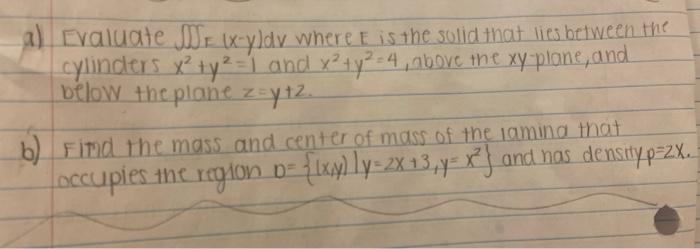 a) Evaluate ∭E (x-y)dv where E is the solid that lies between the
cylinders x²+y²=1 and x²+y²=4, above the xy-plane, and
below the plane z=y+2.
b) Find the mass and center of mass of the lamina that
occupies the region D={(x,y)|y=2x+3,y=x²} and has density ρ=2x.